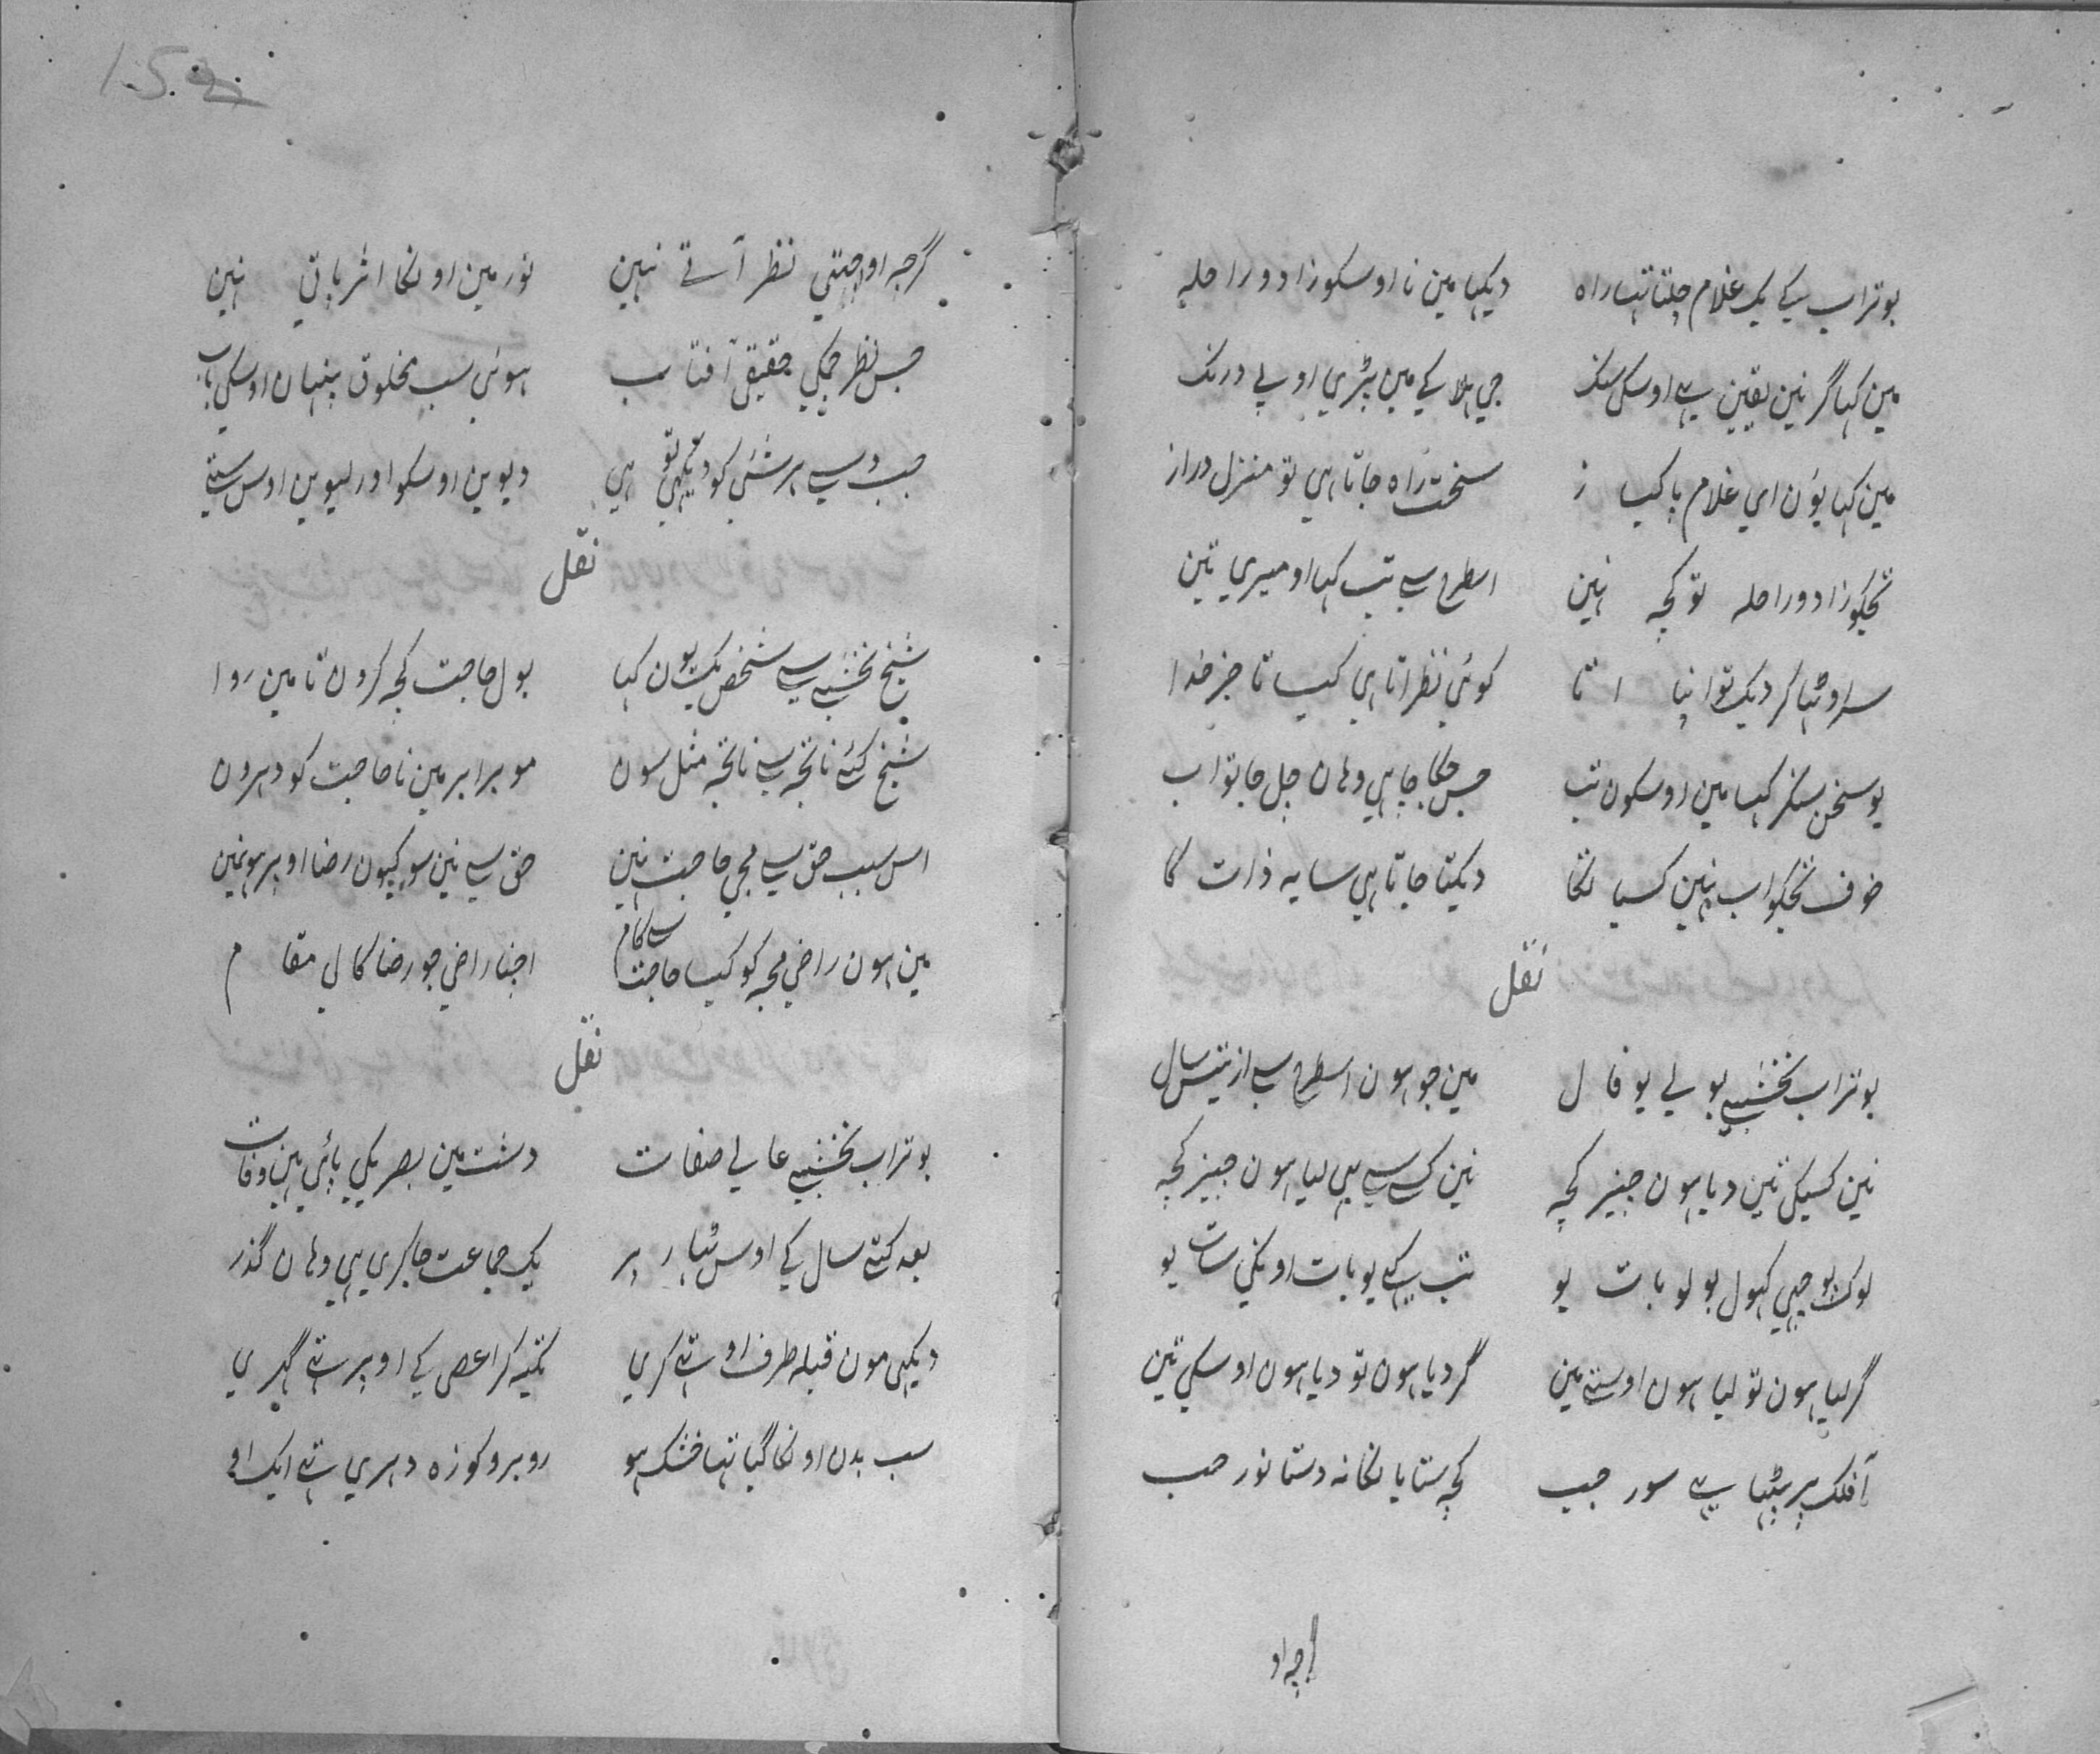 بوتراب سے یک غلام چلتا تہا راہ دیکہا مین نا اوسکو زاد و راحلہ
مین کہا گر نین یقین ہے اوسکی سنگ جی ہلاکی مین پڑی او بے درنگ
مین کہا یون ای غلام پاکبا ز سخت راہ جاتا ہی تو منزل دراز
تجکو زاد و راحلہ تو کچہ نہین اسطرح سے تب کہا او میری تین
سر اوٹہا کر دیک تو اپنا ا تا کوئی نظر اتا ہی کیا تا جز خدا
یو سخن سنکر کہا مین اوسکون تب جس جگا چاہی وہان چل جا تو اب
خوف تجکو اب نہین کسیا نکا دیکتا جاتا ہی سایہ ذات کا
نقل
بوتراب نخشبے بولے یو قا ل مین جو ہون اسطرح سے از تیس سال
نین کسیکی تین دیا ہون چیز کچہ نین کسی سے ہی لیا ہون چیز کچہ
لوک پوچہی کہول بولو بات یو تب کہے یو بات اونکی سات یو
گر لیا ہون تو لیا ہون اوستے مین گر دیا ہون تو دیا ہون اوسکی تین
آفلک پر بیٹہا ہے سور جب کچہ ستایا نکا نہ دستا نور صب
گرچہ او
گرچہ او اچتی نظر آتے نہین نور مین اونکا اثر باقی نہین
جس نظر چمکی حقیقی آفتا ب ہوئی سب مخلوق پنہان اوسکی باب
جب وسے ہر شئی کو دیکہی تو ہی دیوین اوسکو اور لیوین اوس ستے
نقل
شیخ نخشبے سے شخص یک یون کہا بول حاجت کچہ کرون تا مین روا
شیخ کئے نا تجہ سے نا تجہ مثل سون مو برابر مین نا حاجت کو دہرون
اس سبب حق سے مجی حاجت نین حق سے نین سو کیون رضا اوپر ہو نمین
مین ہون راضی مجہ کو کیا حاجت سے کام اچنا راضی جو رضا کا لی مقا م
نقل
بوتراب نخشبے عالے صفات دشت مین بصریکی پائی ہین وفات
بعد کتے سال کے اوس ٹہار پر یک جماعت جا کری ہی وہان گذر
دیکہی مون قبلہ طرف او تہے کری تکیہ کر اعصی کے اوپر تہے کہری
سب بدن اونکا گیا تہا خشک ہو روبرو کوزہ دہری تہے ایک او